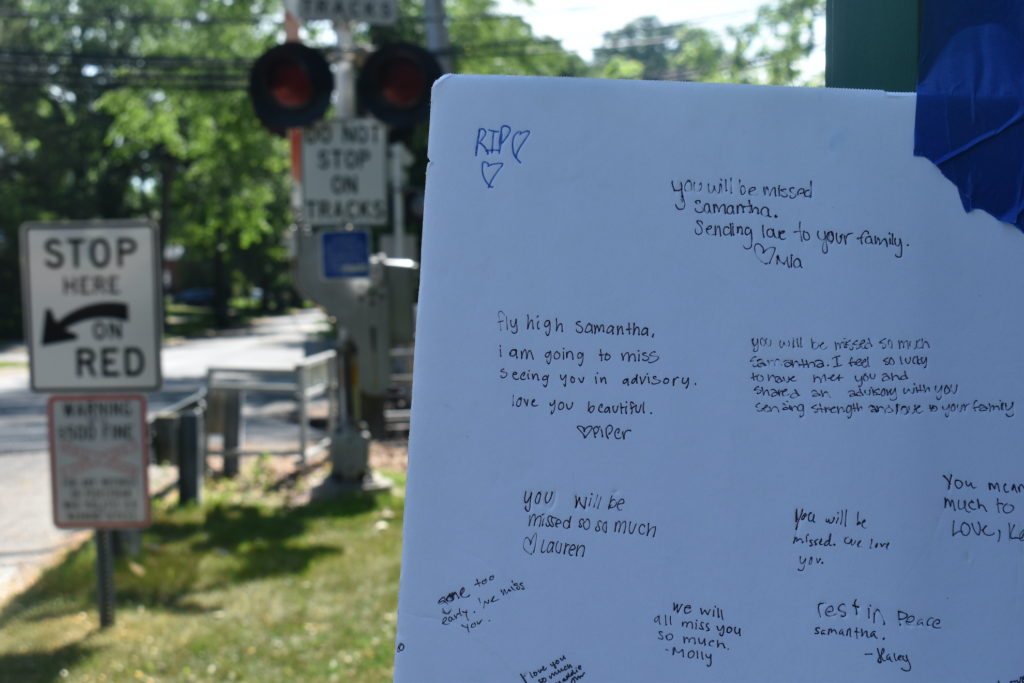 TRACKS
DO NOT
STOP
ON
TRACKS
STOP
HERE
ON
RED
WARNING
$500 FINE
RIP
you will be missed
Samantha.
Sending love to your family.
Mia
fly high Samantha,
i am going to miss
seeing you in advisory.
love you beautiful.
PIPER
you will be missed so much
Samantha. I feel so lucky
to have met you and
shared an advisory with you
Sending strength and love to your family
you will be
missed so so much
Lauren
You will be
missed. We love
you.
You mean
much to
LOVE,
gone too
early. We miss
you.
We will
all miss you
so much.
-Molly
rest in peace
samantha.
-Haley
I love you
so much